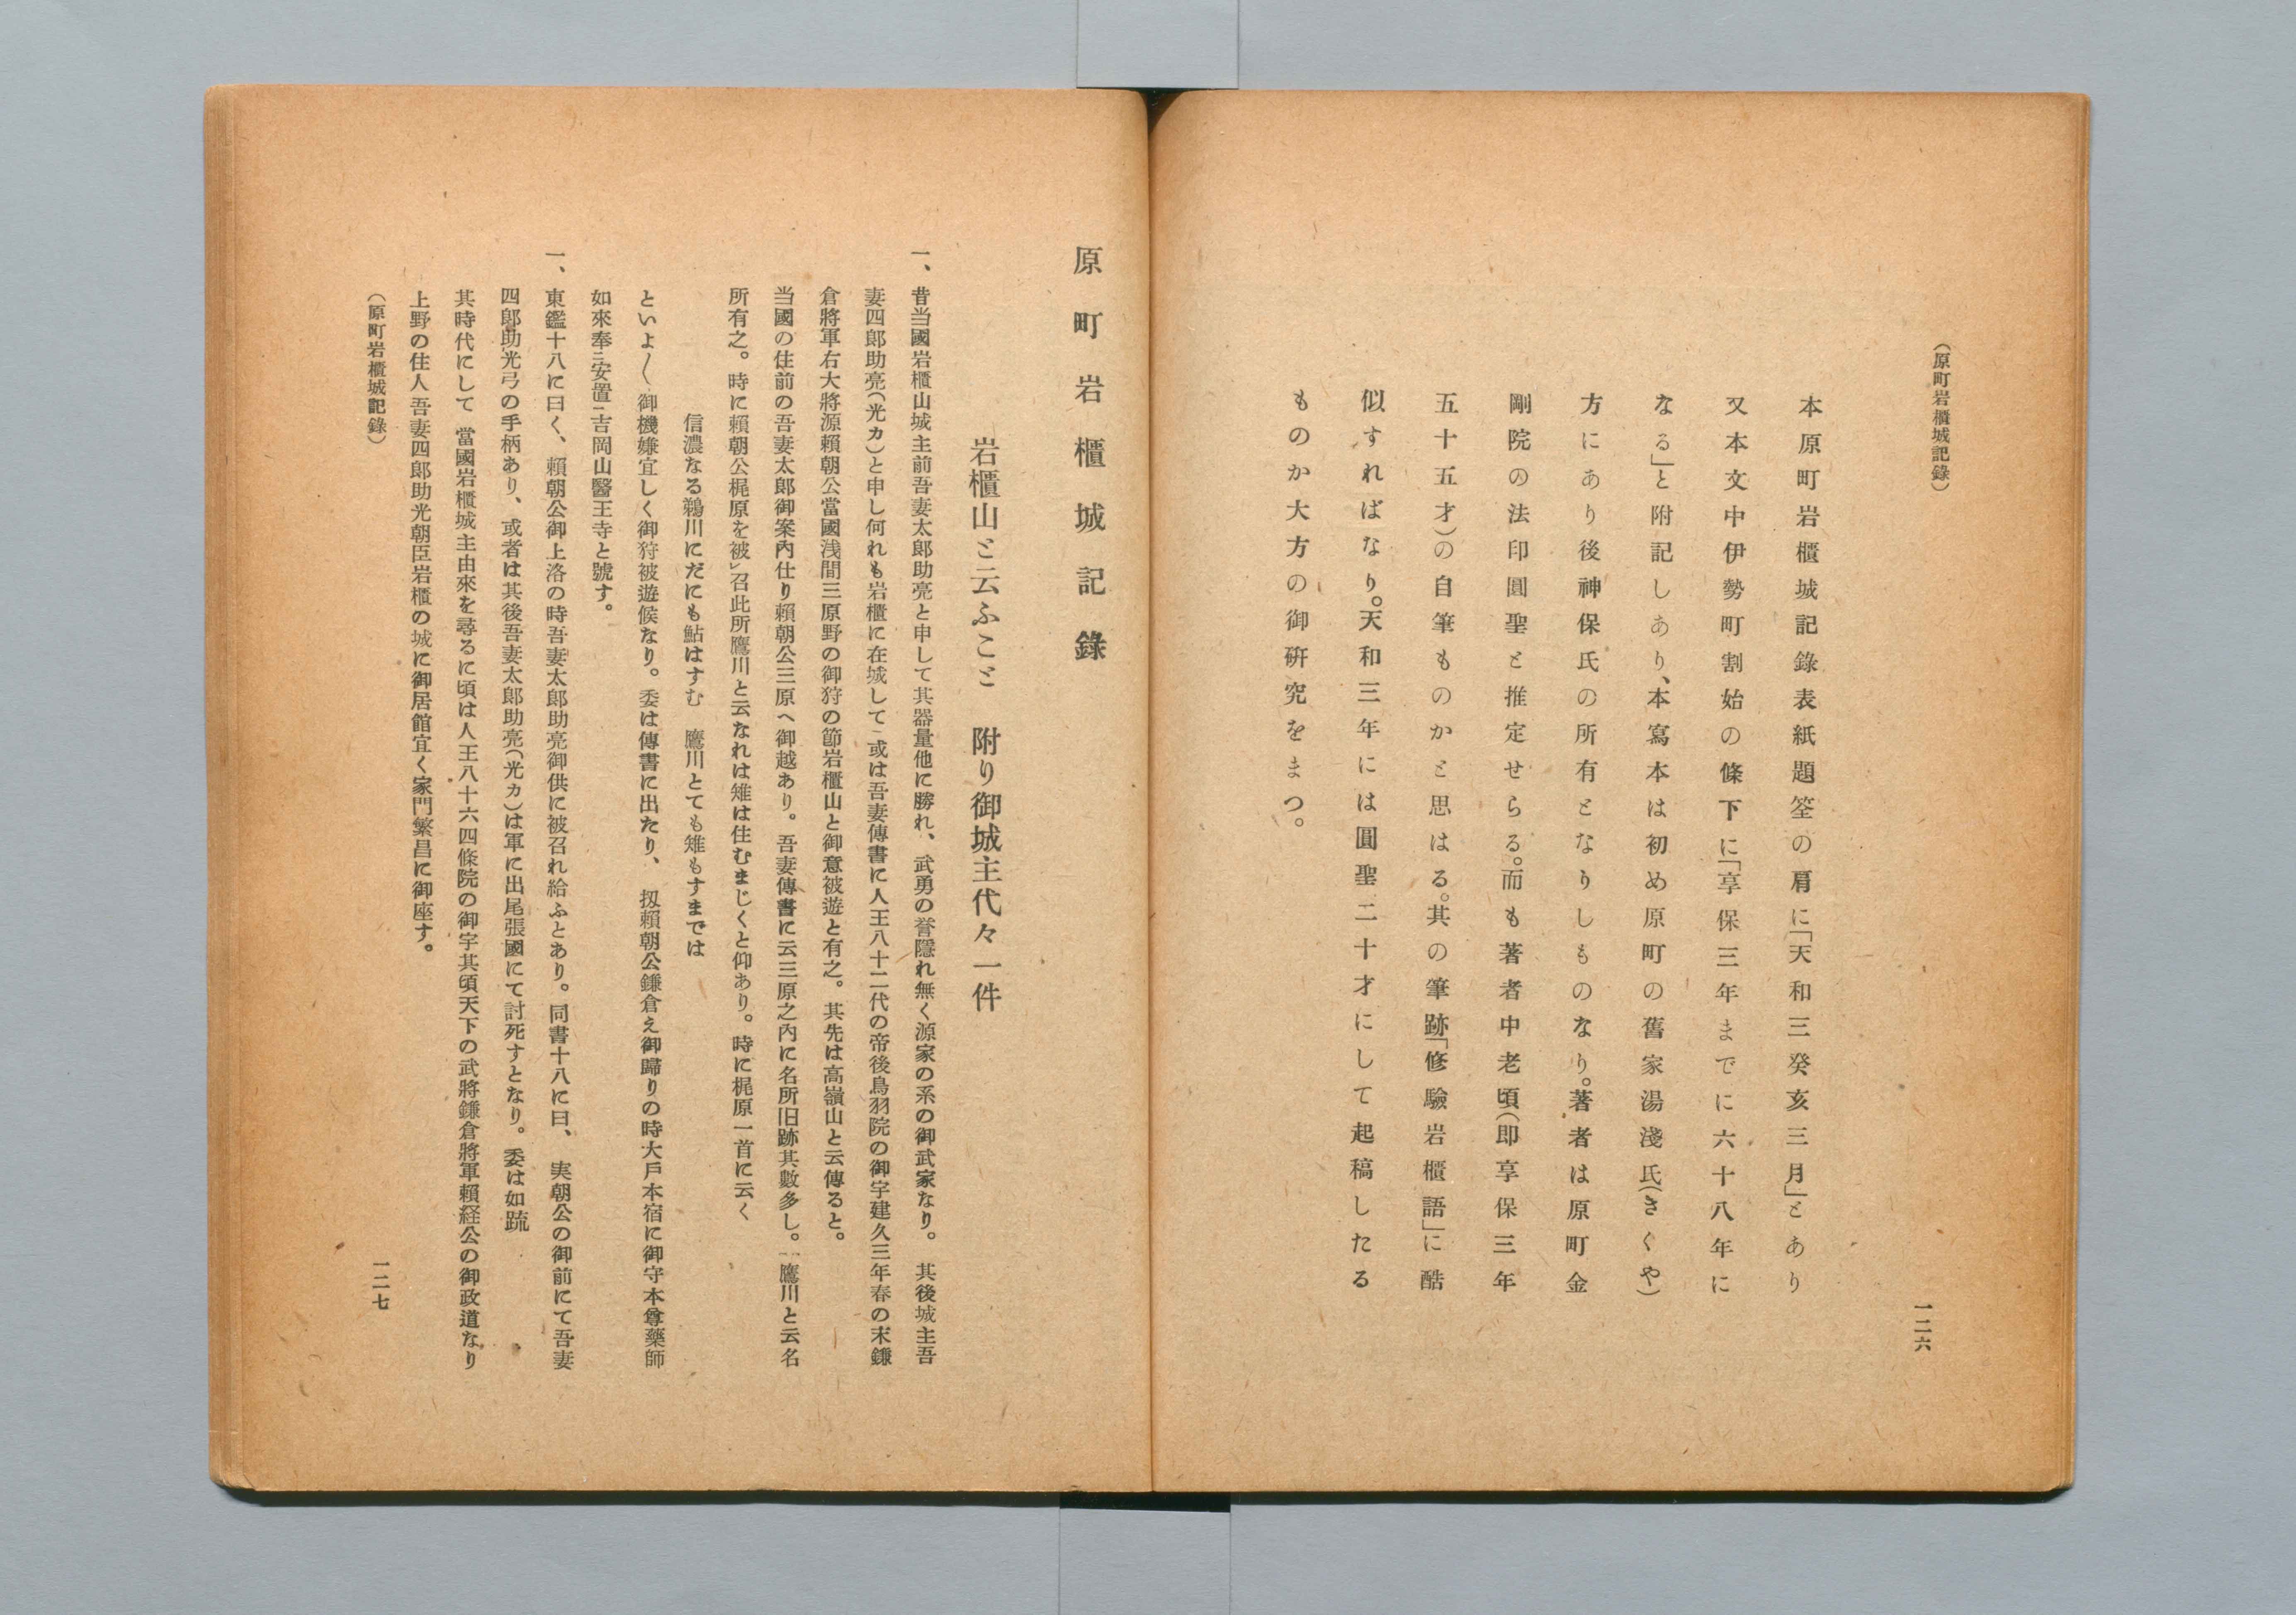 (原町岩櫃城記錄)
一二六
本原町岩櫃城記錄表紙題筌の肩に「天和三癸亥三月」とあり
又本文中伊勢町割始の條下に「享保三年までに六十八年に
なる」と附記しあり、本寫本は初め原町の舊家湯淺氏(きくや)
方にあり後神保氏の所有となりしものなり。著者は原町金
剛院の法印圓聖と推定せらる。而も著者中老頃(即享保三年
五十五才)の自筆ものかと思はる。其の筆跡「修驗岩櫃語」に酷
似すればなり。天和三年には圓聖二十才にして起稿したる
ものか大方の御硏究をまつ。
原町岩櫃城記錄
岩櫃山と云ふこと 附り御城主代々一件
一、昔当國岩櫃山城主前吾妻太郎助亮と申して其器量他に勝れ、武勇の誉隱れ無く源家の系の御武家なり。其後城主吾
妻四郎助亮(光カ)と申し何れも岩櫃に在城して、或は吾妻傳書に人王八十二代の帝後鳥羽院の御宇建久三年春の末鎌
倉將軍右大將源賴朝公當國浅間三原野の御狩の節岩櫃山と御意被遊と有之。其先は高嶺山と云傳ると。
当國の住前の吾妻太郎御案內仕り賴朝公三原へ御越あり。吾妻傳書に云三原之內に名所旧跡其數多し。一、鷹川と云名
所有之。時に賴朝公梶原を被レ召此所鷹川と云なれは雉は住むまじくと仰あり。時に梶原一首に云く
信濃なる鵜川にだにも鮎はすむ 鷹川とても雉もすまでは
といよ〳〵御機嫌宜しく御狩被遊候なり。委は傳書に出たり、扨賴朝公鎌倉え御歸りの時大戶本宿に御守本尊藥師
如來奉ニ安置ニ吉岡山醫王寺と號す。
一、東鑑十八に曰く、賴朝公御上洛の時吾妻太郎助亮御供に被召れ給ふとあり。同書十八に曰、実朝公の御前にて吾妻
四郎助光弓の手柄あり、或者は其後吾妻太郎助亮(光カ)は軍に出尾張國にて討死すとなり。委は如䟽
其時代にして 當國岩櫃城主由來を尋るに頃は人王八十六四條院の御宇其頃天下の武將鎌倉將軍賴経公の御政道なり
上野の住人吾妻四郎助光朝臣岩櫃の城に御居館宜く家門繁昌に御座す。
(原町岩櫃城記錄)
一二七